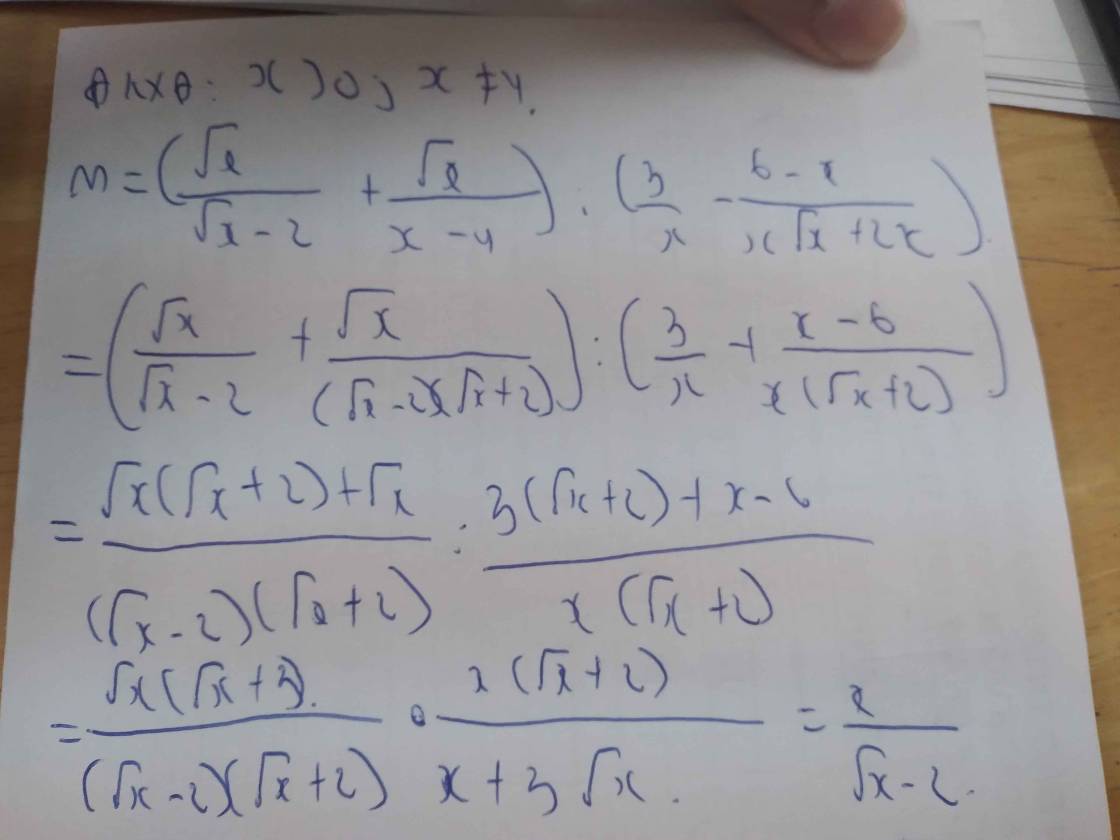 ĐKXĐ: x > 0; x ≠ 4.
M = (√x/(√x - 2) + √x/(x - 4)) : (3/x - (6 - x)/(x√x + 2x)).
= (√x/(√x - 2) + √x/((√x - 2)(√x + 2))) : (3/x + (x - 6)/(x(√x + 2)))
= (√x(√x + 2) + √x)/((√x - 2)(√x + 2)) : (3(√x + 2) + x - 6)/(x(√x + 2))
= (√x(√x + 3).)/((√x - 2)(√x + 2)) · (x(√x + 2))/(x + 3√x.) = x/(√x - 2).